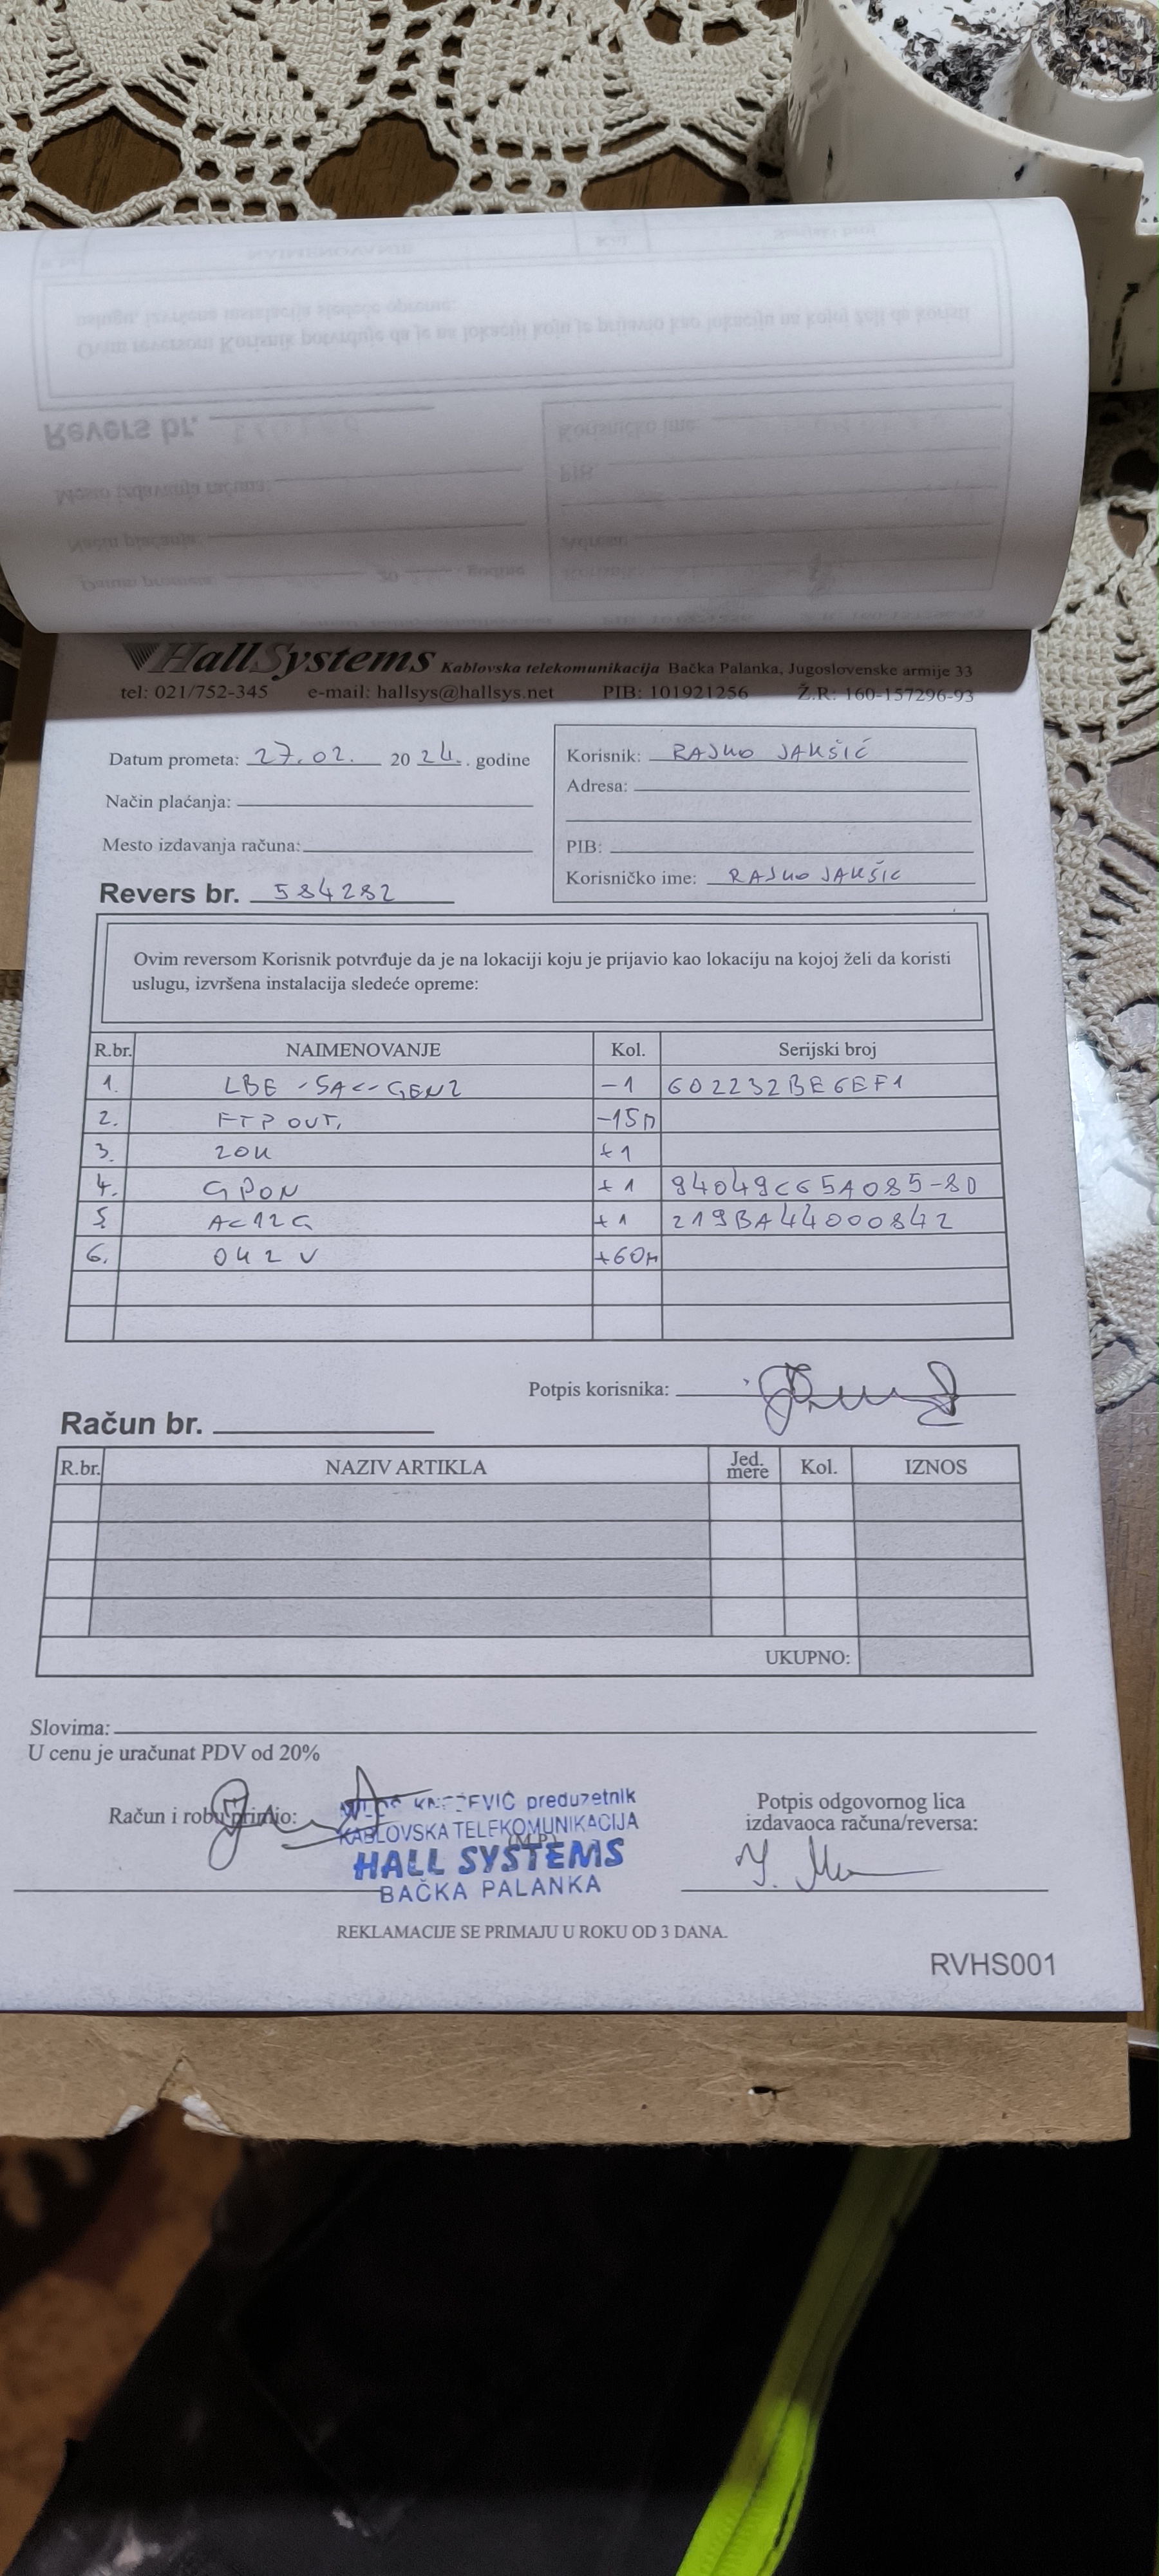 HallSystems Kablovska telekomunikacija Bačka Palanka, Jugoslovenske armije 33
tel: 021/752-345 e-mail: hallsys@hallsys.net PIB: 101921256 Ž.R: 160-157296-93
Datum prometa: 27.02. 20 24. . godine
Način plaćanja:
Mesto izdavanja računa:
Revers br. 584282
Korisnik: RAJKO JAKŠIĆ
Adresa:
PIB:
Korisničko ime: RAJKO JAKŠIĆ
Ovim reversom Korisnik potvrđuje da je na lokaciji koju je prijavio kao lokaciju na kojoj želi da koristi
uslugu, izvršena instalacija sledeće opreme:
R.br. NAIMENOVANJE Kol. Serijski broj
1. LBE-5AC-GEN2 -1 602232BE6EF1
2. FTP OUT. -15m
3. ZOK +1
4. GPON +1 94049C65A085-8D
5. AC12G +1 219BA44000842
6. OK 2 V +60m
Potpis korisnika:
Račun br.
R.br. NAZIV ARTIKLA Jed. mere Kol. IZNOS
UKUPNO:
Slovima:
U cenu je uračunat PDV od 20%
Račun i robu primio:
preduzetnik
KABLOVSKA TELEKOMUNIKACIJA
(M.P.)
HALL SYSTEMS
BAČKA PALANKA
Potpis odgovornog lica
izdavaoca računa/reversa:
REKLAMACIJE SE PRIMAJU U ROKU OD 3 DANA.
RVHS001